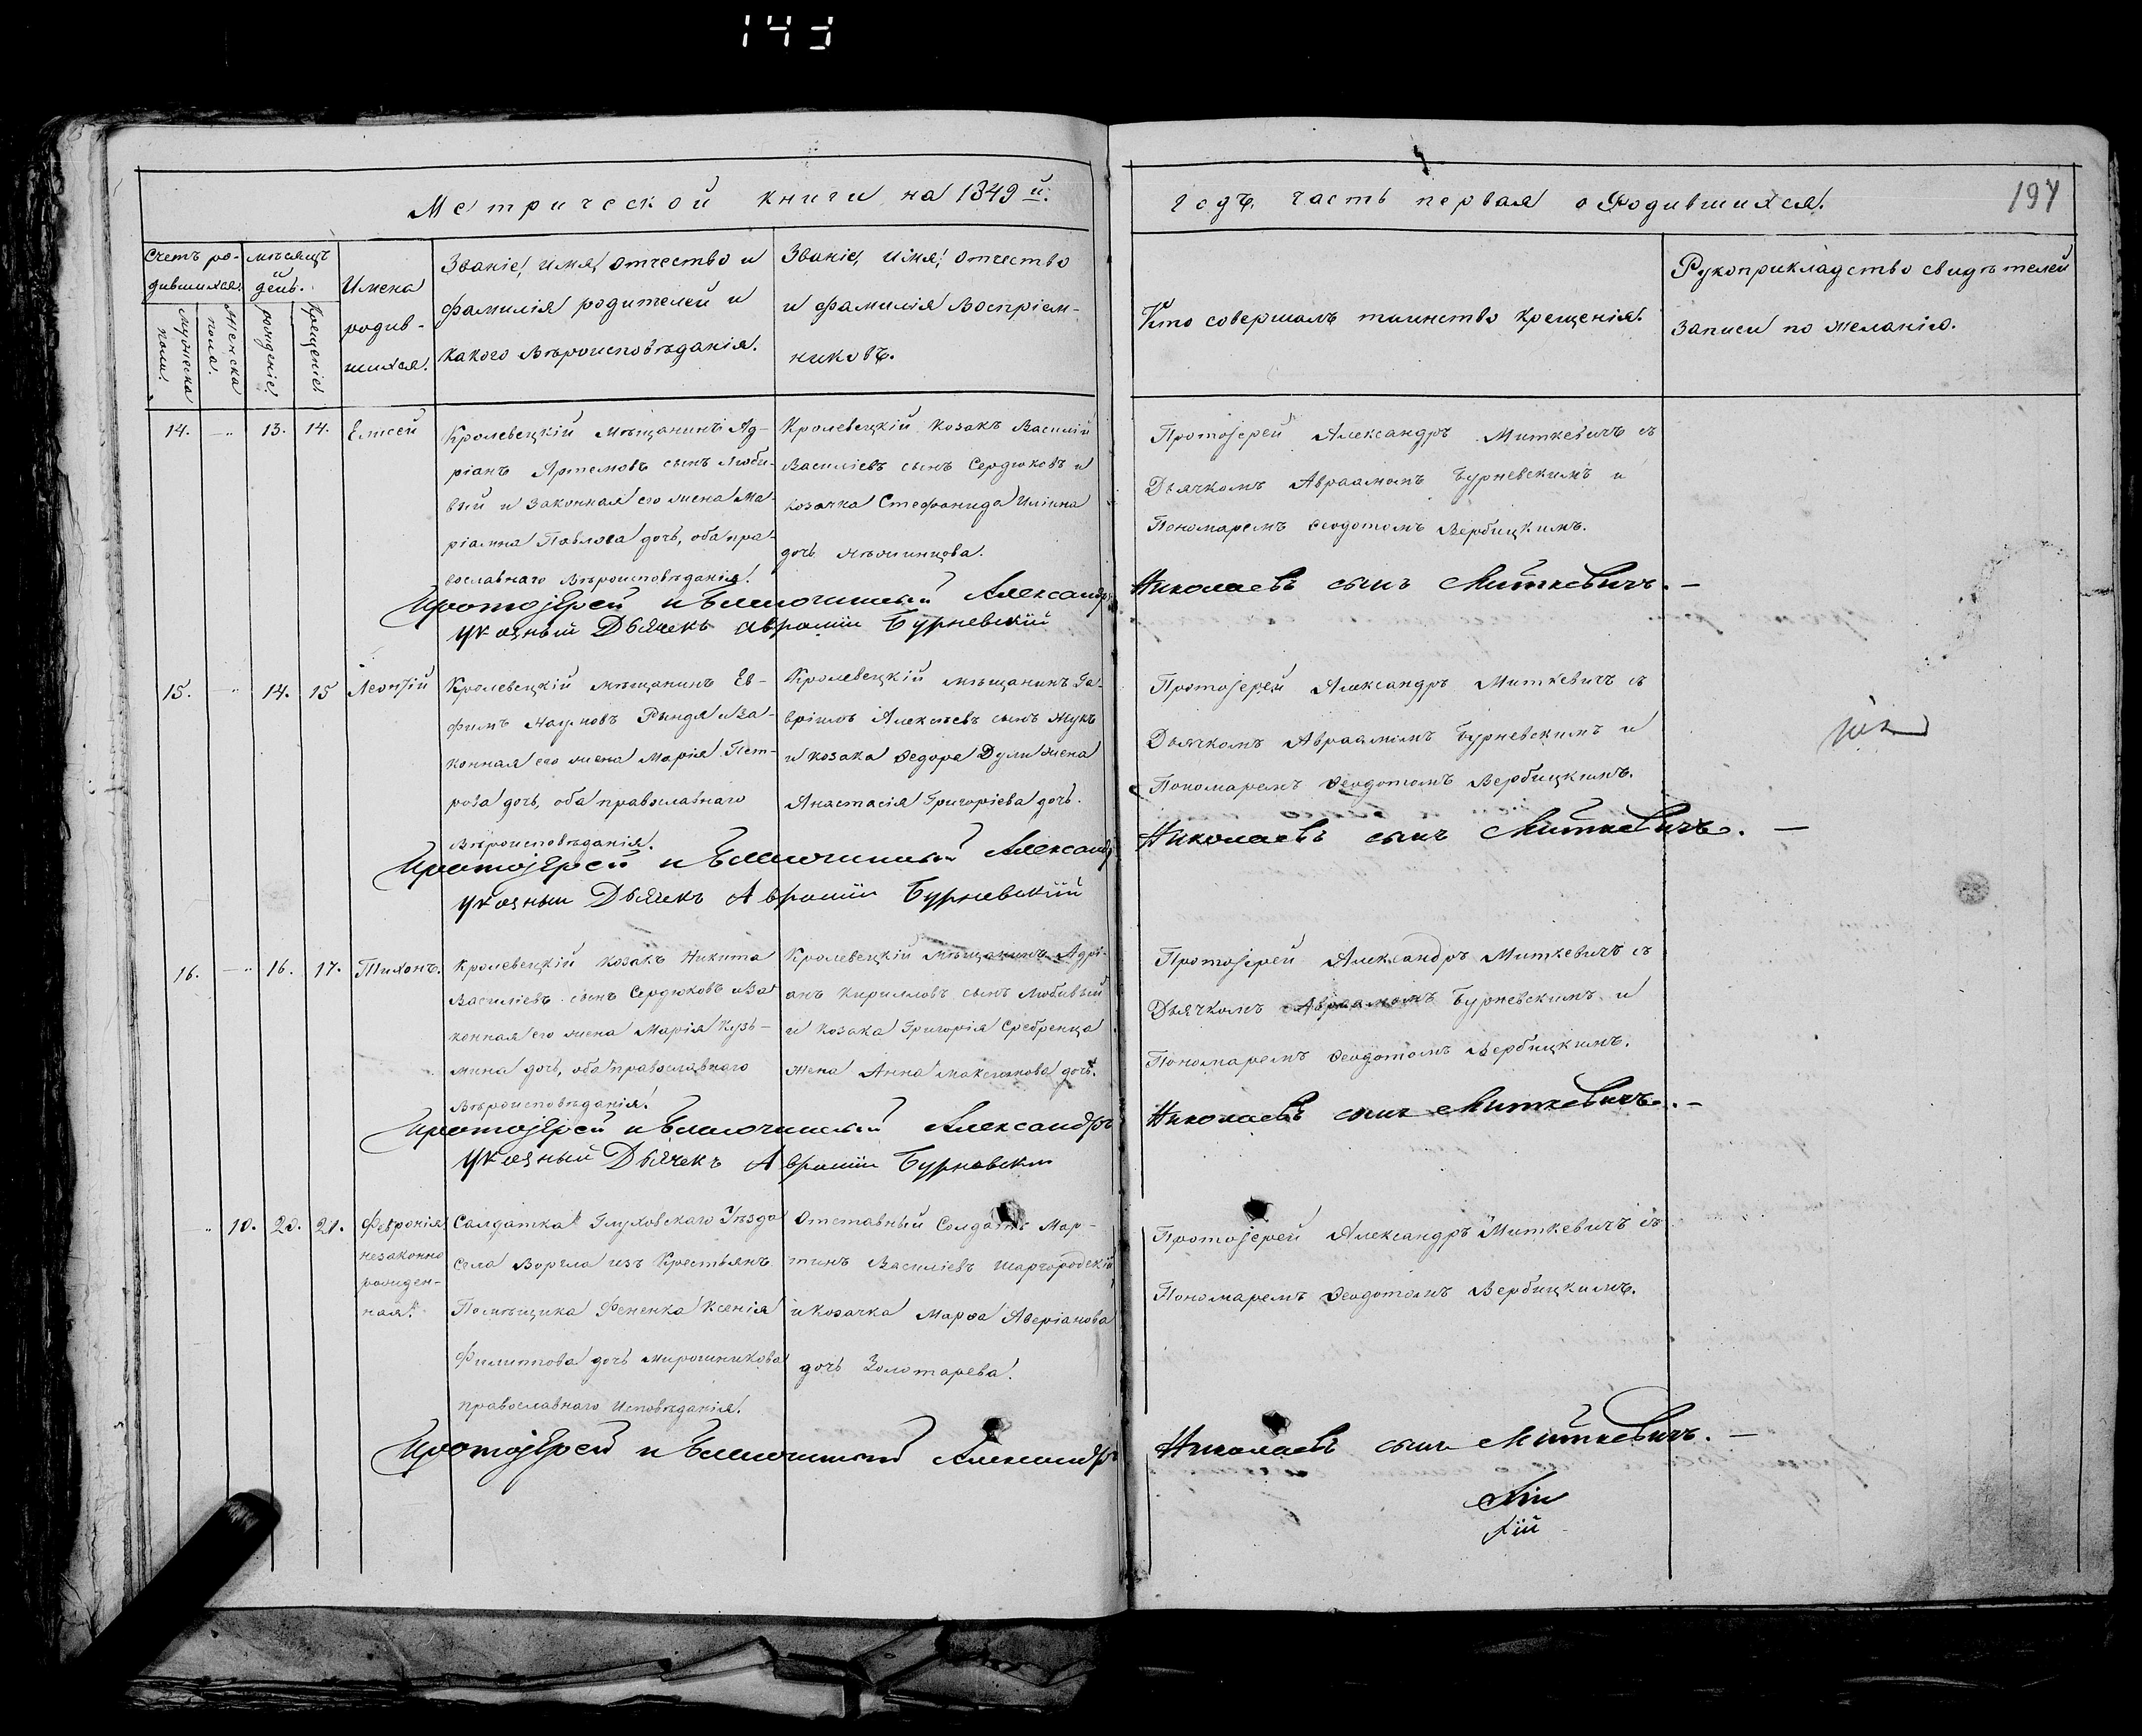 143
Метрической книги на 1849 й.
годъ часть первая о Родившихся.
197
Счетъ ро-
дившихся.
мѣсяцъ
день.
Мужеска
пола.
Женска
пола.
рожденіе.
Крещеніе.
Имена
родив-
шихся.
Званіе, имя, отчество и
фамилія родителей и
какого вѣроисповѣданія.
Званіе, имя, отчество
и фамилія Воспріем-
никовъ.
Кто совершалъ таинство крещенія.
Рукоприкладство свидѣтелей
записи по желанію.
14.
13.
14.
Елисей
Кролевецкій мѣщанинъ Ад-
ріанъ Артемовъ сынъ Люби-
вый и законная его жена Ма-
ріамна Павлова дочь, оба пра-
вославнаго вѣроисповѣданія.
Кролевецкій козакъ Василій
Василіевъ сынъ Сердюковъ и
козачка Стефанида Иліина
дочь
Протоіерей Александръ Миткевичъ съ
Дьячкомъ Авраамомъ Бурневскимъ и
Пономаремъ Ѳеодотомъ Вербицкимъ.
Протоіерей и Благочинный Александръ Николаевъ сынъ Миткевичъ. —
указный Дьячекъ Аврамій Бурневскій
15.
14.
15
Леонтій
Кролевецкій мѣщанинъ Ев-
фимъ Наумовъ Рындя и за-
конная его жена Марія Пет-
рова дочь, оба православнаго
вѣроисповѣданія.
Кролевецкій мѣщанинъ Га-
вріилъ Алексѣевъ сынъ Жукъ
и козака Ѳедора Дули жена
Анастасія Григоріева дочь.
Протоіерей Александръ Миткевичъ съ
Дьячкомъ Авраамомъ Бурневскимъ и
Пономаремъ Ѳеодотомъ Вербицкимъ.
Протоіерей и Благочинный Александръ Николаевъ сынъ Миткевичъ. —
указный Дьячекъ Аврамій Бурневскій
16.
16.
17.
Тихонъ.
Кролевецкій козакъ Никита
Василіевъ сынъ Сердюковъ и за
конная его жена Марія Кузь-
мина дочь, оба православнаго
вѣроисповѣданія.
Кролевецкій мѣщанинъ Адрі-
анъ Кирилловъ сынъ Любивый
и козака Григорія Сребренца
жена Анна Максимова дочь.
Протоіерей Александръ Миткевичъ съ
Дьячкомъ Авраамомъ Бурневскимъ и
Пономаремъ Ѳеодотомъ Вербицкимъ.
Протоіерей и Благочинный Александръ Николаевъ сынъ Миткевичъ. —
указный Дьячекъ Аврамій Бурневскій
10.
20.
21.
Февронія
незаконно
рожден-
ная.
Салдатка Глуховскаго Уѣзда
села Воргла изъ Крестьянъ
Помѣщика Фененка Ксенія
Филиппова дочь Мирошникова
православнаго Исповѣданія.
Отставный Солдатъ Мар-
тинъ Василіевъ Шаргородскій
и козачка Марѳа Аверіанова
дочь Золотарева.
Протоіерей Александръ Миткевичъ съ
Пономаремъ Ѳеодотомъ Вербицкимъ.
Протоіерей и Благочинный Александръ Николаевъ сынъ Миткевичъ. —